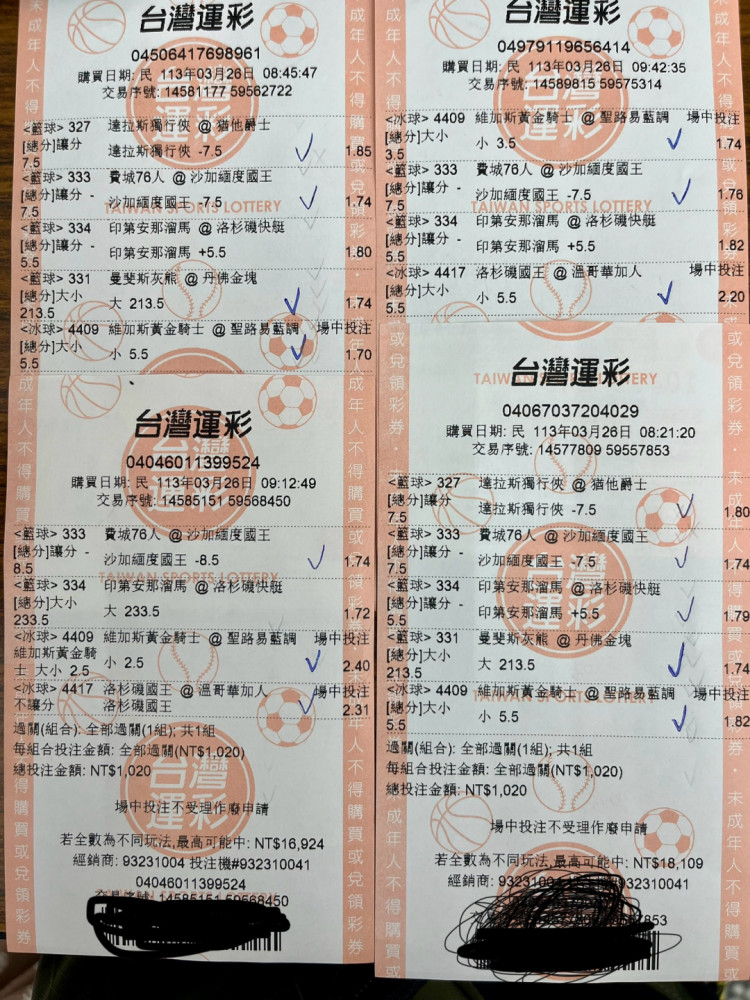 台灣運彩
04506417698961
購買日期: 民 113年03月26日 08:45:47
交易序號: 14581177 59562722
<籃球> 327 達拉斯獨行俠 @ 猶他爵士
[總分]讓分
7.5 達拉斯獨行俠 -7.5 1.85
<籃球> 333 費城76人 @ 沙加緬度國王
[總分]讓分 -
7.5 沙加緬度國王 -7.5 1.74
TAIWAN SPORTS LOTTERY
<籃球> 334 印第安那溜馬 @ 洛杉磯快艇
[總分]讓分 -
5.5 印第安那溜馬 +5.5 1.80
<籃球> 331 曼斐斯灰熊 @ 丹佛金塊
[總分]大小
213.5 大 213.5 1.74
<冰球> 4409 維加斯黃金騎士 @ 聖路易藍調 場中投注
[總分]大小
5.5 小 5.5 1.70
台灣運彩
04979119656414
購買日期: 民 113年03月26日 09:42:35
交易序號: 14589815 59575314
<冰球> 4409 維加斯黃金騎士 @ 聖路易藍調 場中投注
[總分]大小
3.5 小 3.5 1.74
<籃球> 333 費城76人 @ 沙加緬度國王
[總分]讓分 -
7.5 沙加緬度國王 -7.5 1.76
TAIWAN SPORTS LOTTERY
<籃球> 334 印第安那溜馬 @ 洛杉磯快艇
[總分]讓分 -
5.5 印第安那溜馬 +5.5 1.82
<冰球> 4417 洛杉磯國王 @ 溫哥華加人 場中投注
[總分]大小
5.5 小 5.5 2.20
台灣運彩
04046011399524
購買日期: 民 113年03月26日 09:12:49
交易序號: 14585151 59568450
<籃球> 333 費城76人 @ 沙加緬度國王
[總分]讓分 -
8.5 沙加緬度國王 -8.5 1.74
TAIWAN SPORTS LOTTERY
<籃球> 334 印第安那溜馬 @ 洛杉磯快艇
[總分]大小
233.5 大 233.5 1.72
<冰球> 4409 維加斯黃金騎士 @ 聖路易藍調 場中投注
維加斯黃金騎
士 大小 2.5 小 2.5 2.40
<冰球> 4417 洛杉磯國王 @ 溫哥華加人 場中投注
不讓分 洛杉磯國王 2.31
過關(組合): 全部過關(1組); 共1組
每組合投注金額: 全部過關(NT$1,020)
總投注金額: NT$1,020
場中投注不受理作廢申請
若全數為不同玩法,最高可能中: NT$16,924
經銷商: 93231004 投注機#932310041
04046011399524
交易序號: 14585151 59568450
台灣運彩
04067037204029
購買日期: 民 113年03月26日 08:21:20
交易序號: 14577809 59557853
<籃球> 327 達拉斯獨行俠 @ 猶他爵士
[總分]讓分
7.5 達拉斯獨行俠 -7.5 1.80
<籃球> 333 費城76人 @ 沙加緬度國王
[總分]讓分 -
7.5 沙加緬度國王 -7.5 1.74
<籃球> 334 印第安那溜馬 @ 洛杉磯快艇
[總分]讓分 -
5.5 印第安那溜馬 +5.5 1.79
<籃球> 331 曼斐斯灰熊 @ 丹佛金塊
[總分]大小
213.5 大 213.5 1.74
<冰球> 4409 維加斯黃金騎士 @ 聖路易藍調 場中投注
[總分]大小
5.5 小 5.5 1.82
過關(組合): 全部過關(1組); 共1組
每組合投注金額: 全部過關(NT$1,020)
總投注金額: NT$1,020
場中投注不受理作廢申請
若全數為不同玩法,最高可能中: NT$18,109
經銷商: 932310 932310041
7853